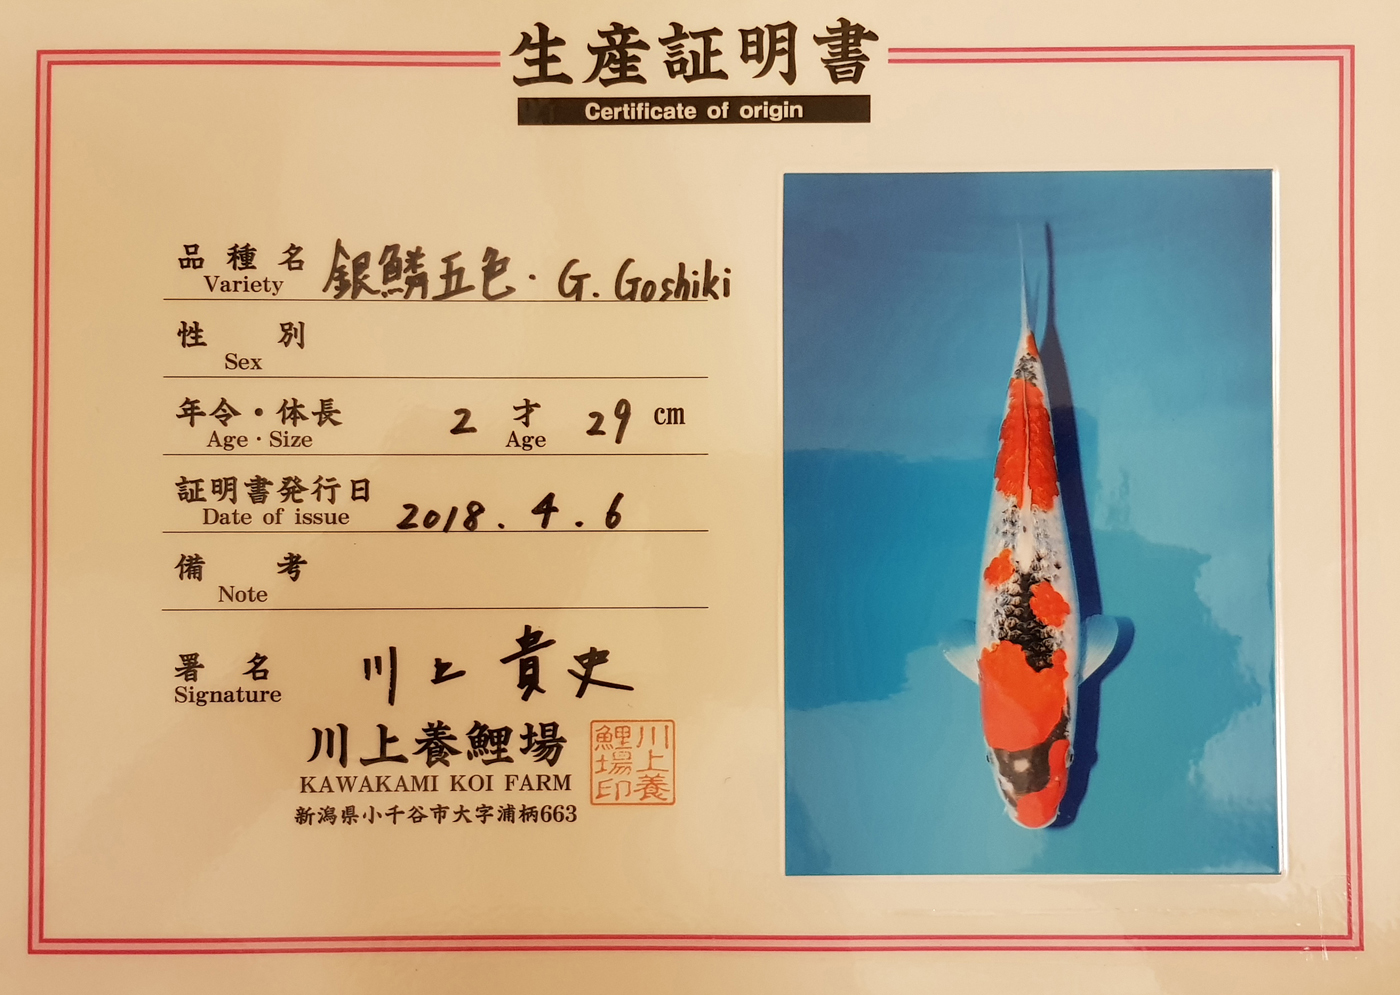 生産証明書
Certificate of origin
品種名 銀鱗五色・G. Goshiki
Variety
性別
Sex
年令・体長 2才 29cm
Age・Size Age
証明書発行日 2018.4.6
Date of issue
備考
Note
署名 川上貴史
Signature
川上養鯉場
KAWAKAMI KOI FARM
新潟県小千谷市大字浦柄663
川上養
鯉場印